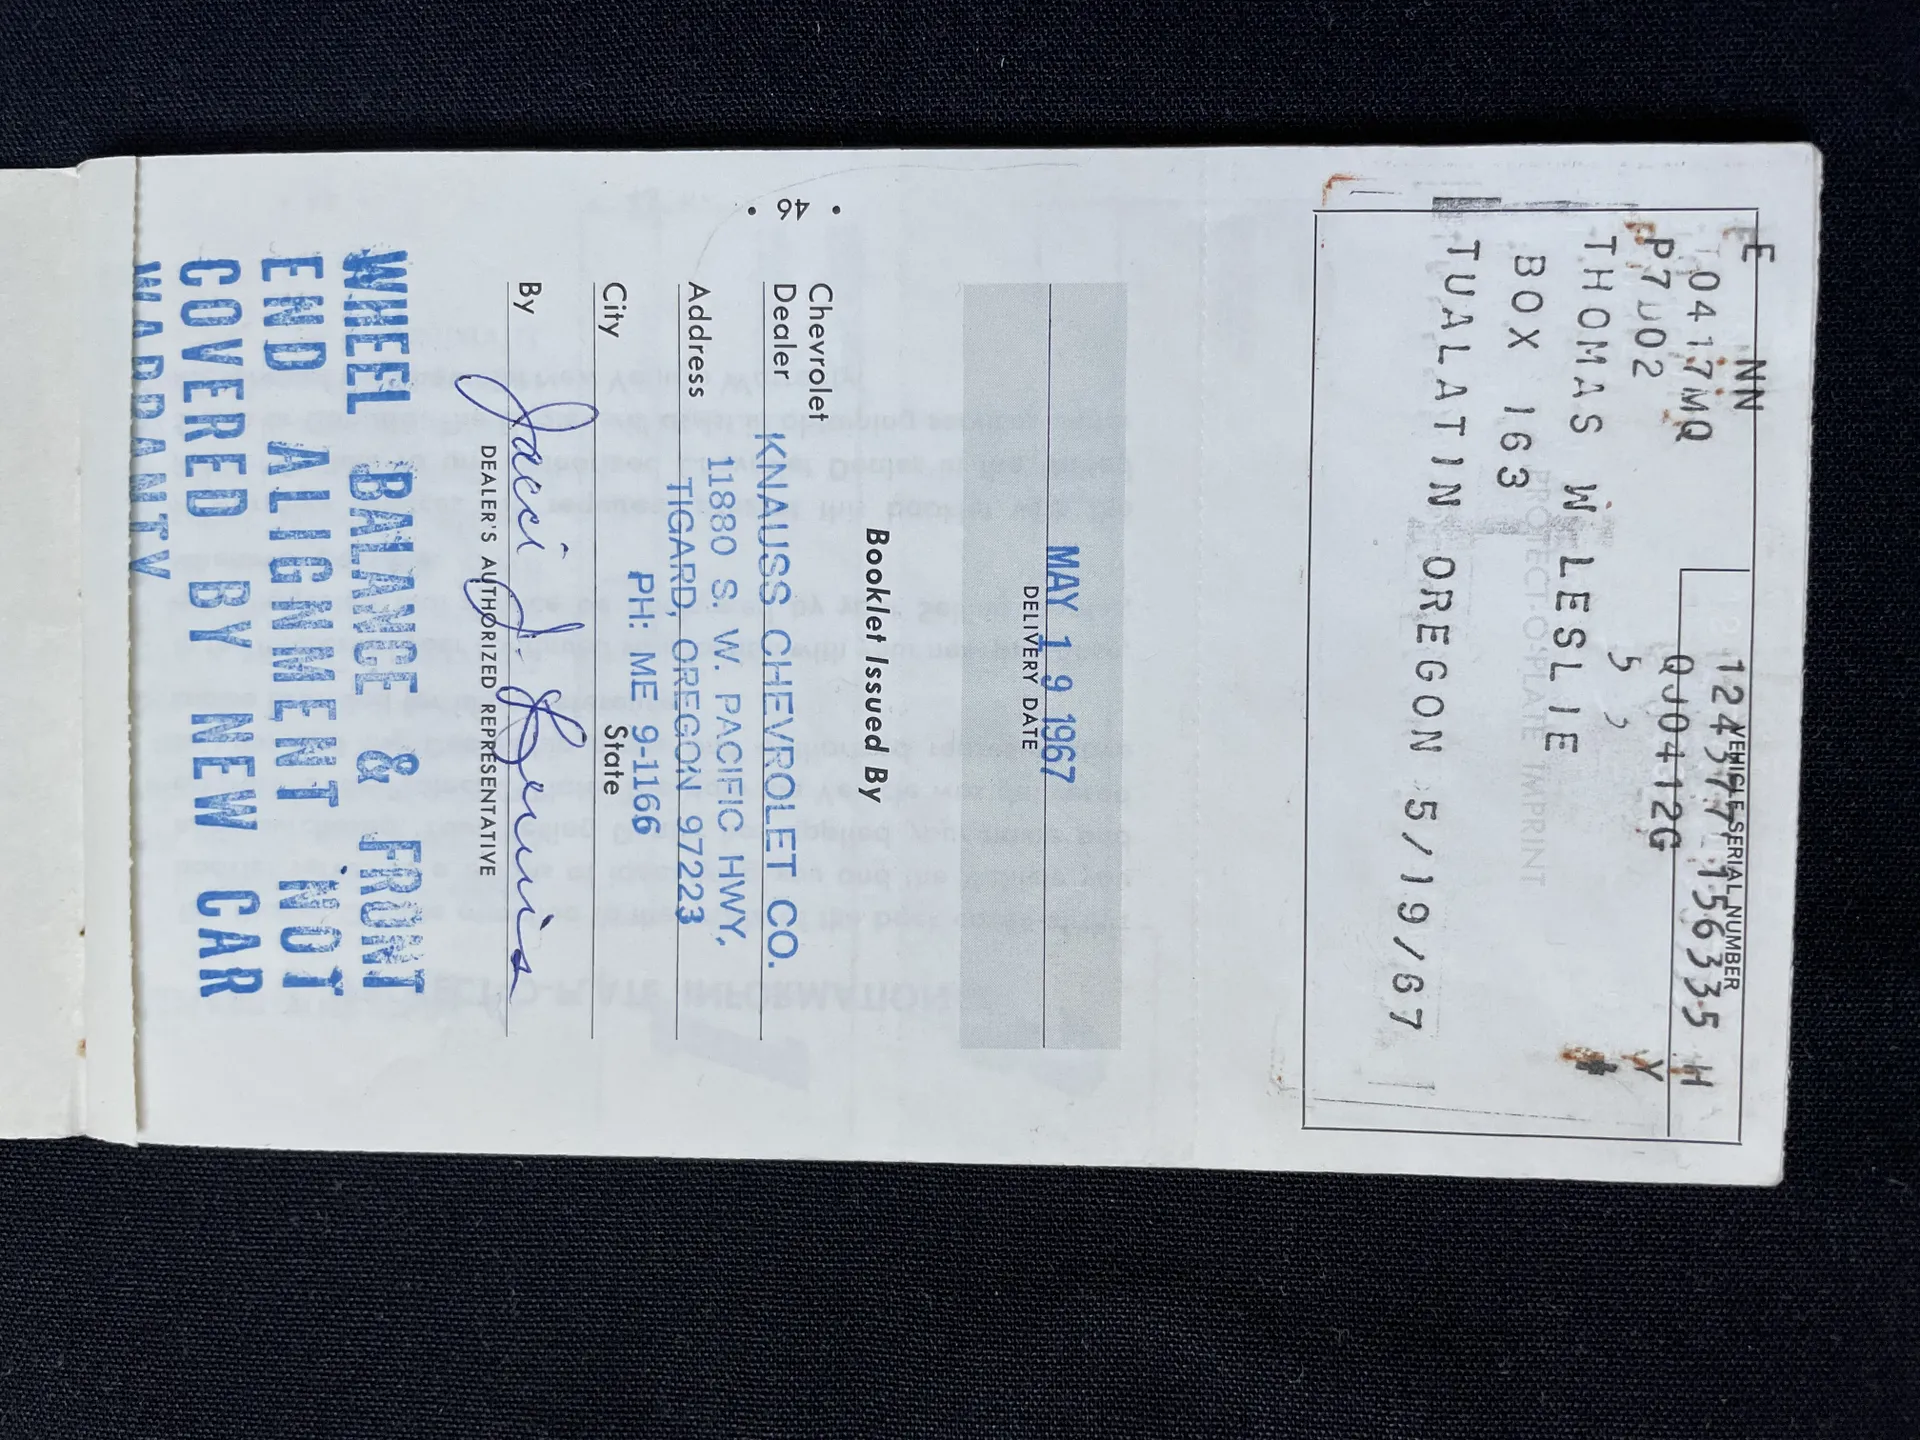 E NN
VEHICLE SERIAL NUMBER
124377L156335 H
T0417MQ
QJ0412G Y
P7D02
5 5
THOMAS W LESLIE
BOX 163
PROTECT-O-PLATE IMPRINT
TUALATIN OREGON 5/19/67
MAY 19 1967
DELIVERY DATE
Booklet Issued By
Chevrolet
Dealer KNAUSS CHEVROLET CO.
11880 S. W. PACIFIC HWY,
Address TIGARD, OREGON 97223
PH: ME 9-1166
City State
By Jacci J. Lewis
DEALER'S AUTHORIZED REPRESENTATIVE
WHEEL BALANCE & FRONT
END ALIGNMENT NOT
COVERED BY NEW CAR
WARRANTY
• 46 •